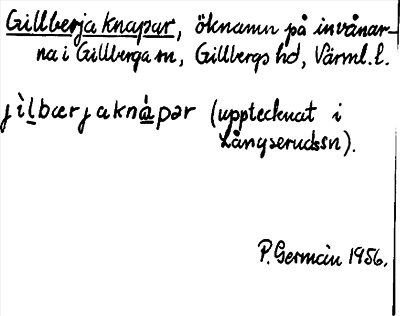 Gillberja knapar, öknamn på invånar-
na i Gillberga sn, Gillbergs hd, Värml. l.
jìl̲bærjakná̲pər (upptecknat i
Långserudssn).
P. Germain 1956.